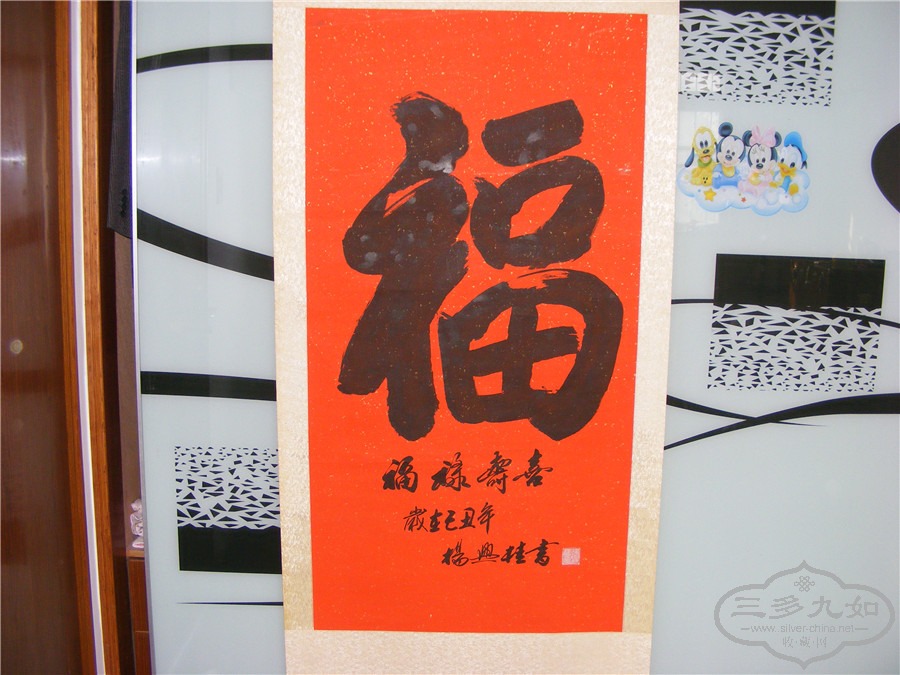 福
福禄寿喜
歲在己丑年
楊興桂書
三多九如
www.silver-china.net
收藏网